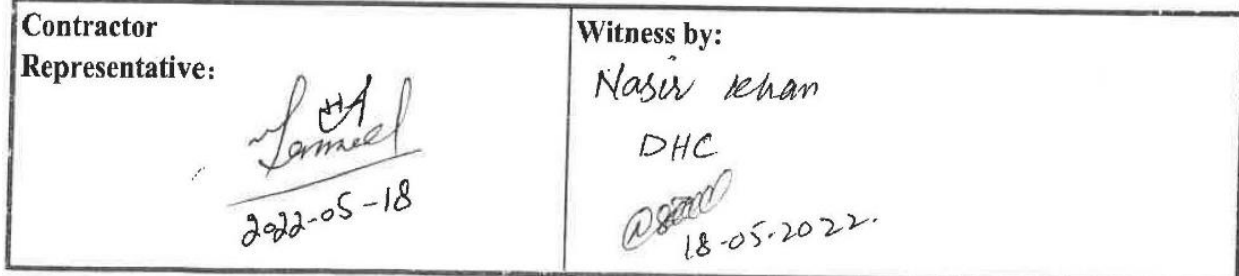 Contractor
Representative:
2022-05-18
Witness by:
Nasir Khan
DHC
18-05-2022.